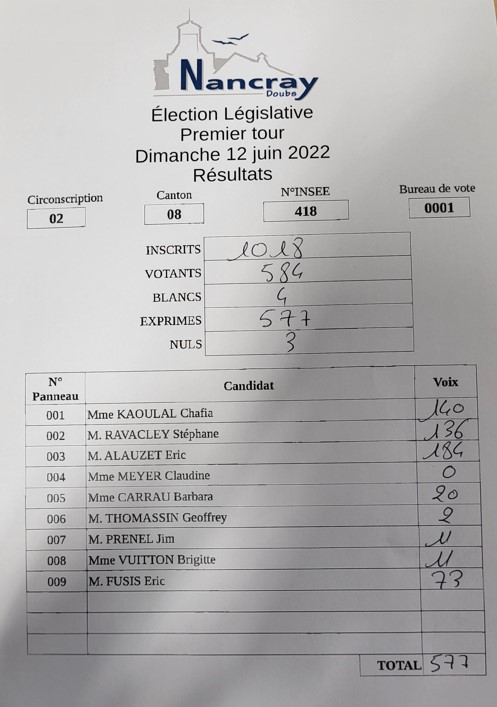 Nancray
Doubs
Élection Législative
Premier tour
Dimanche 12 juin 2022
Résultats
Circonscription Canton N°INSEE Bureau de vote
02 08 418 0001
INSCRITS 1018
VOTANTS 584
BLANCS 4
EXPRIMES 577
NULS 3
N° Panneau Candidat Voix
001 Mme KAOULAL Chafia 140
002 M. RAVACLEY Stéphane 136
003 M. ALAUZET Eric 184
004 Mme MEYER Claudine 0
005 Mme CARRAU Barbara 20
006 M. THOMASSIN Geoffrey 2
007 M. PRENEL Jim 11
008 Mme VUITTON Brigitte 11
009 M. FUSIS Eric 73
TOTAL 577